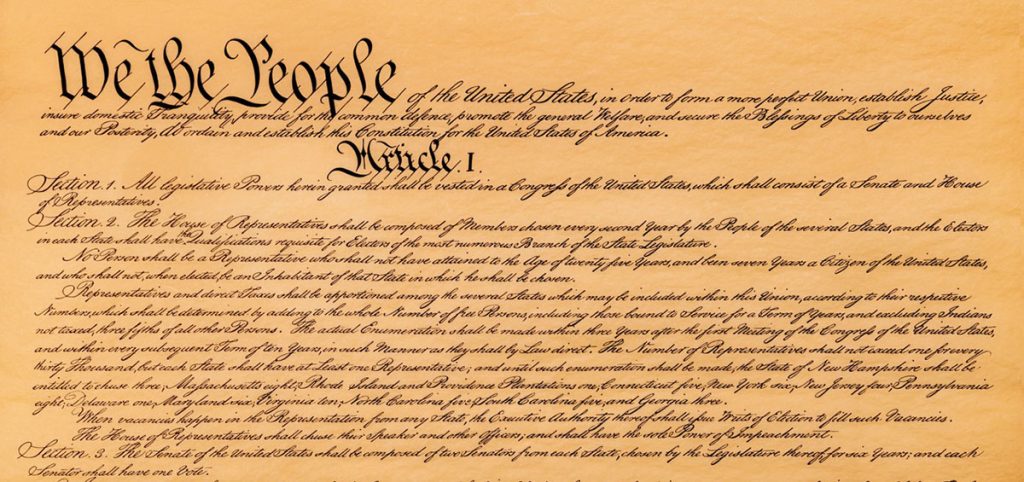 We the People of the United States, in order to form a more perfect Union, establish Justice,
insure domestic Tranquility, provide for the common defence, promote the general Welfare, and secure the Blessings of Liberty to ourselves
and our Posterity, do ordain and establish this Constitution for the United States of America.
Article. I.
Section. 1. All legislative Powers herein granted shall be vested in a Congress of the United States, which shall consist of a Senate and House
of Representatives.
Section. 2. The House of Representatives shall be composed of Members chosen every second Year by the People of the several States, and the Electors
in each State shall have the Qualifications requisite for Electors of the most numerous Branch of the State Legislature.
No Person shall be a Representative who shall not have attained to the Age of twenty five Years, and been seven Years a Citizen of the United States,
and who shall not, when elected, be an Inhabitant of that State in which he shall be chosen.
Representatives and direct Taxes shall be apportioned among the several States which may be included within this Union, according to their respective
Numbers, which shall be determined by adding to the whole Number of free Persons, including those bound to Service for a Term of Years, and excluding Indians
not taxed, three fifths of all other Persons. The actual Enumeration shall be made within three Years after the first Meeting of the Congress of the United States,
and within every subsequent Term of ten Years, in such Manner as they shall by Law direct. The Number of Representatives shall not exceed one for every
thirty Thousand, but each State shall have at Least one Representative; and until such enumeration shall be made, the State of New Hampshire shall be
entitled to chuse three, Massachusetts eight, Rhode Island and Providence Plantations one, Connecticut five, New York six, New Jersey four, Pennsylvania
eight, Delaware one, Maryland six, Virginia ten, North Carolina five, South Carolina five, and Georgia three.
When vacancies happen in the Representation from any State, the Executive Authority thereof shall issue Writs of Election to fill such Vacancies.
The House of Representatives shall chuse their Speaker and other Officers; and shall have the sole Power of Impeachment.
Section. 3. The Senate of the United States shall be composed of two Senators from each State, chosen by the Legislature thereof, for six Years; and each
Senator shall have one Vote.